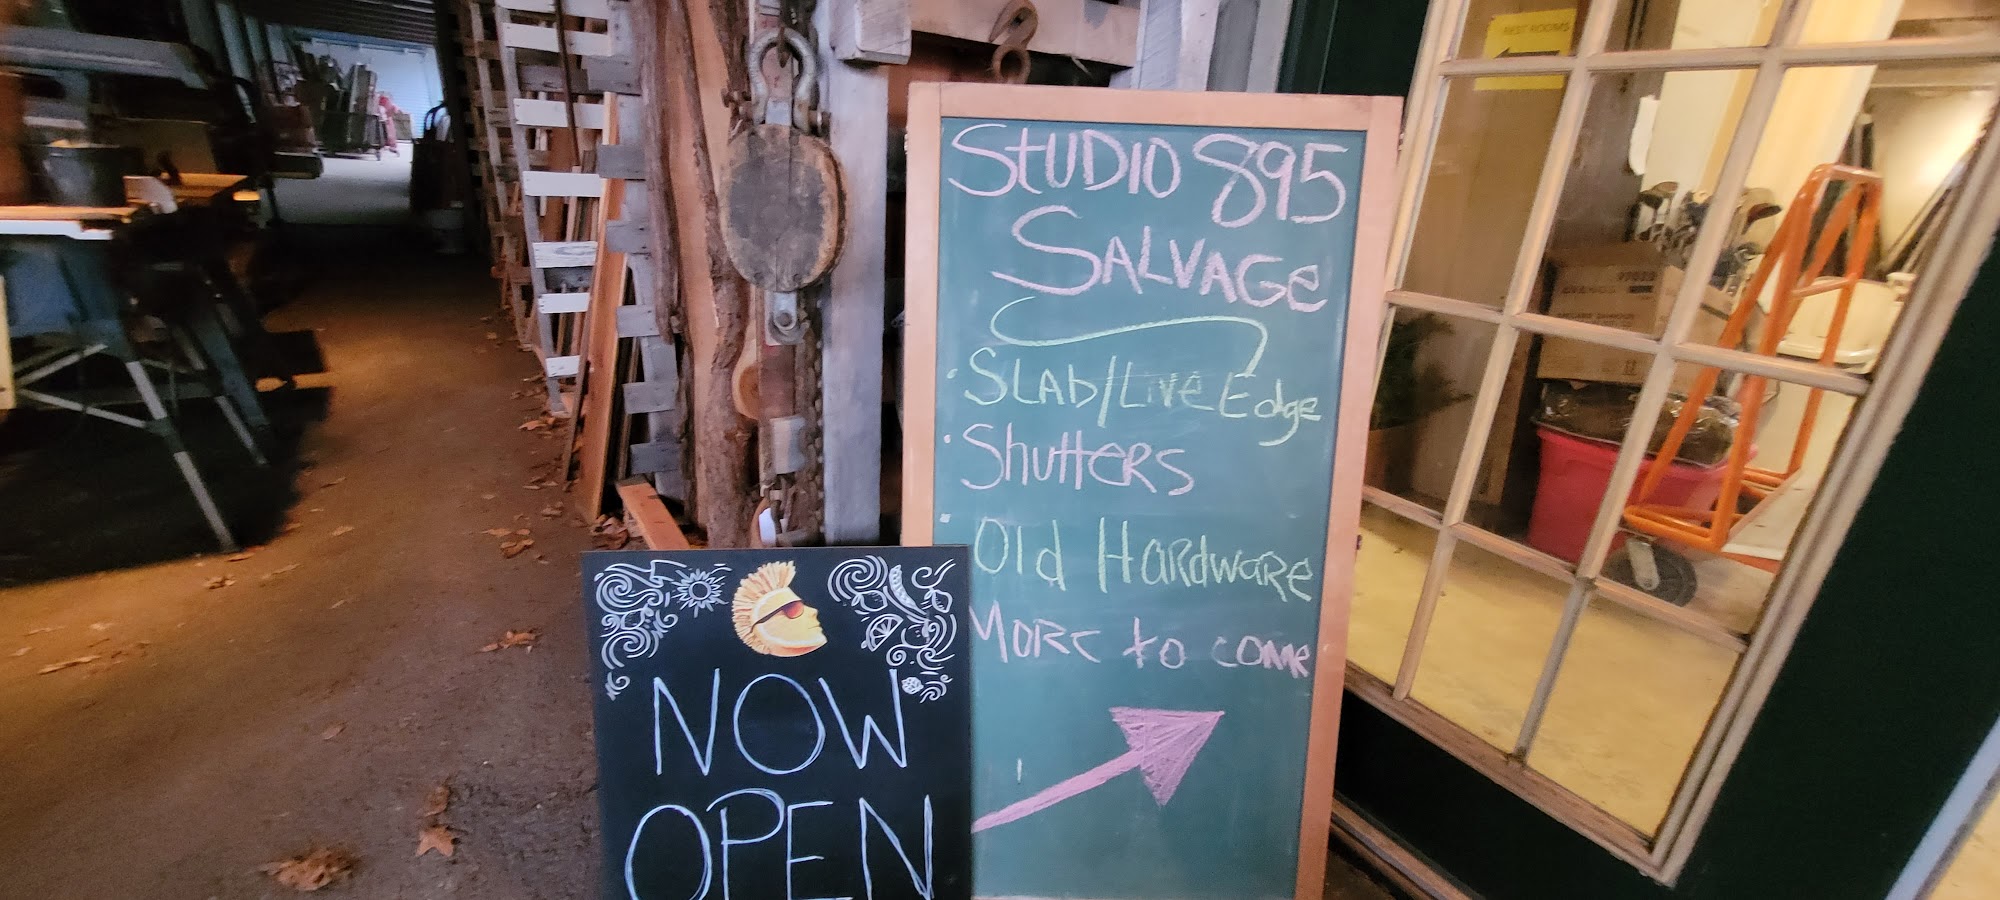 REST ROOMS
STUDIO 895
SALVAGE
· SLAb/LIVE Edge
· ShuttERS
· Old HaRdwaRE
MORE to COME
NOW
OPEN